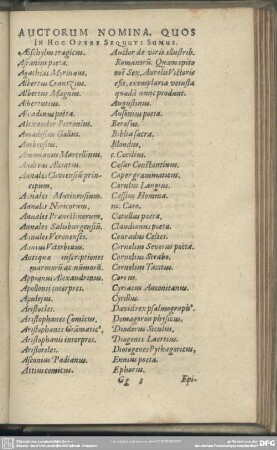 AUCTORUM NOMINA, QUOS
IN HOC OPERE SEQUUTI SUMUS.
Æschylus tragicus.
Afranius poeta.
Agathius Myrinæus.
Albertus Crantzius.
Albertus Magnus.
Albertutius.
Alexander Petronius.
Amadisius Gallus.
Ambrosius.
Ammianus Marcellinus.
Andreas Alciatus.
Annales Mutinensium.
Annales Noricorum.
Annales Prænestinorum.
Annales Salisburgensiū.
Annales Veronenses.
Annius Viterbiensis.
Antiquæ inscriptiones
marmorū ac nūmorū.
Appianus Alexandrinus.
Apollonii interpres.
Apulejus.
Aristoteles.
Aristophanes Comicus.
Aristophanes Grāmaticus,
Aristophanis interpres.
Aristoteles.
Asconius Pædianus.
Attius comicus.
Auctor de viris illustrib.
Romanorū. Quam epito
mē Sex. Aurelii Victoris
esse, exemplaria vetusta
quædā nunc produnt.
Augustinus.
Ausonius poeta.
Berosus.
Biblia sacra.
Blondus.
C. Cæcilius.
Cæsar Constantinus.
Caper grammaticus.
Carolus Langius.
Cassius Hemina.
M. Cato.
Catullus poeta.
Claudianus poeta.
Conradus Celtes.
Cornelius Severus poëta.
Cornelius Strabo.
Cornelius Tacitus.
Cyriacus Anconitanus.
Cyrillus.
David rex psalmographus.
Demagoron physicus.
Diodorus Siculus,
Diogenes Laertius.
Diotogenes Pythagoricus,
Ennius poeta.
Ephorus.
Gg 3 Epi-